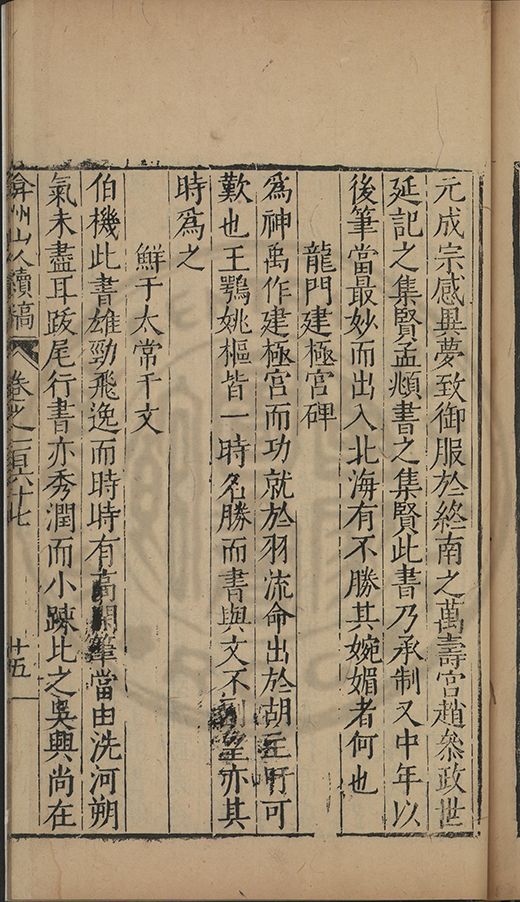 元成宗感異夢致御服於終南之萬壽宮趙叅政世
延記之集賢孟頫書之集賢此書乃承制又中年以
後筆當最妙而出入北海有不勝其婉媚者何也
龍門建極宮碑
爲神禹作建極宮而功就於羽流命出於胡主吁可
歎也王鶚姚樞皆一時名勝而書與文不副望亦其
時爲之
鮮于太常千文
伯機此書雄勁飛逸而時時有高閑筆當由洗河朔
氣未盡耳跋尾行書亦秀潤而小踈比之吳興尚在
弇州山人續稿
卷之一百六十七
十五